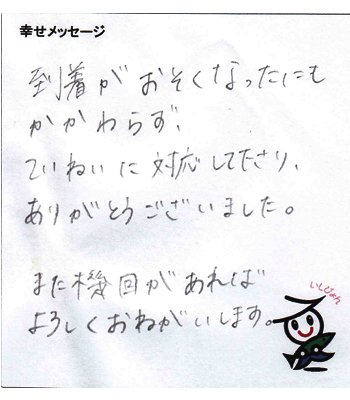 幸せメッセージ
到着がおそくなったにも
かかわらず、
ていねいに対応して下さり、
ありがとうございました。
また機回があれば
よろしくおねがいします。
いしぴょん